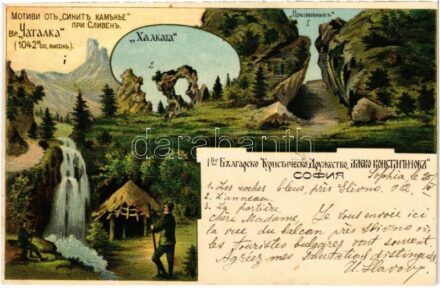 Мотиви отъ „Синитѣ камъне"
при Сливенъ.
Вр. „Чаталка"
(1042 м. висок.)
1
„Халката"
2
3
darabanth
1во Българско Туристическо Дружество, „Алеко Константиновъ"
СОФИЯ
Sophia le 20/
1. Les roches bleus, près Slivno. 902.
2. L'anneau.
3. La portière
Chère Madame, Je vous envoie ici
la vue du balcan près Slivno où
les touristes bulgares vont souvent.
Agréez mes salutations distinguées